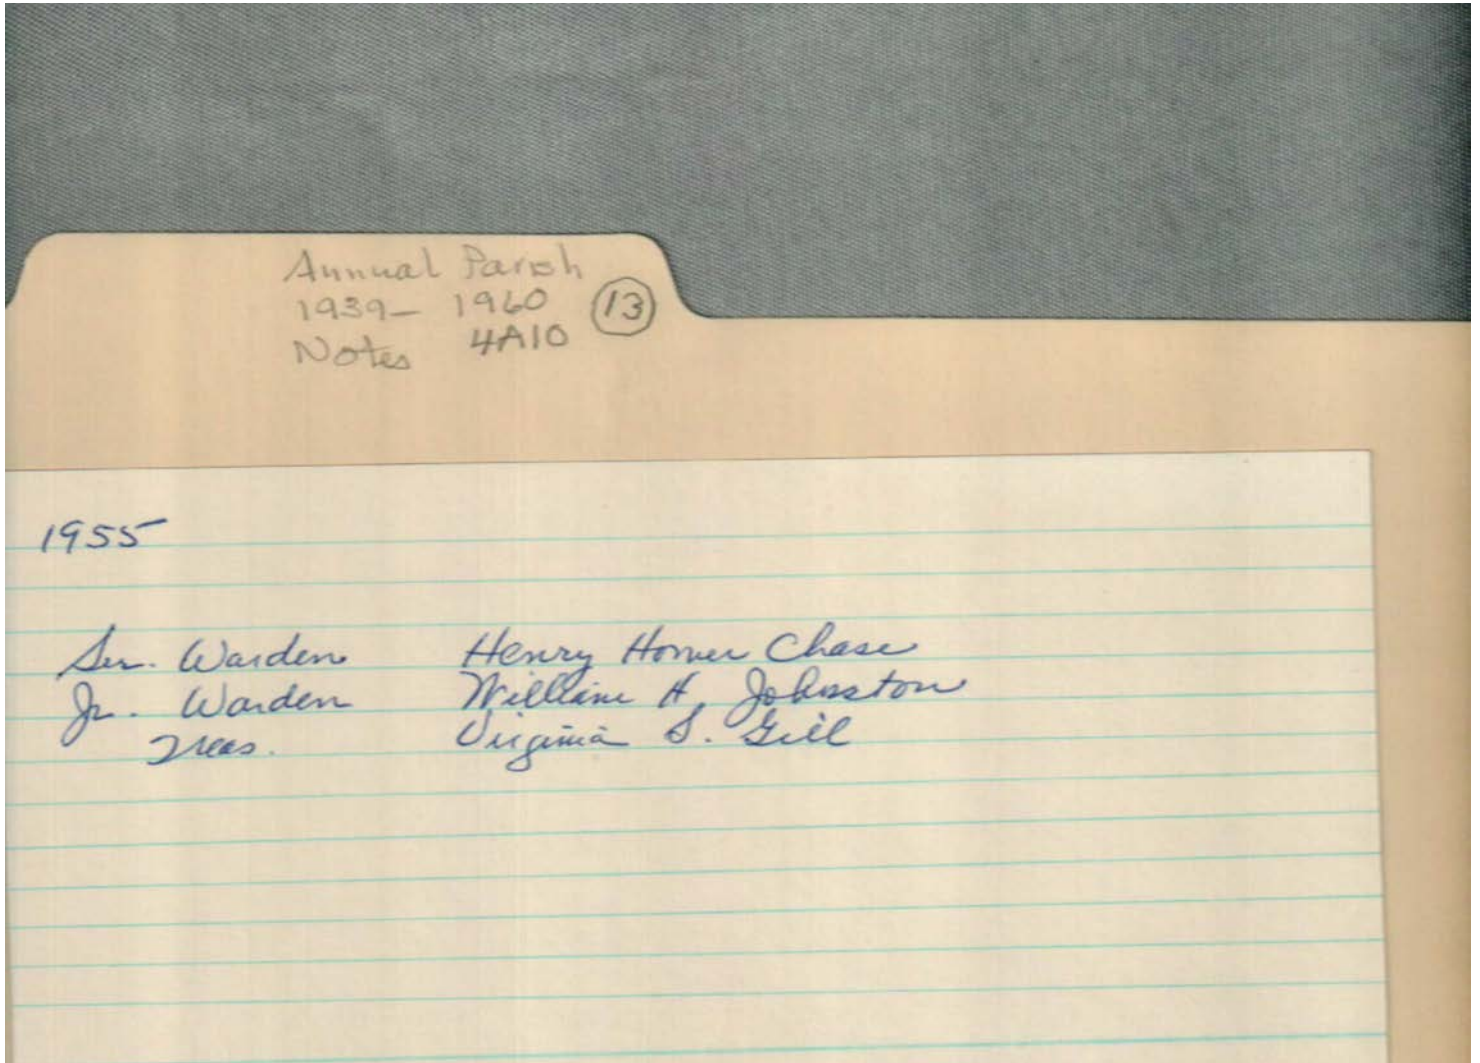 Annual Parish
1939- 1960 13
Notes 4A10
1955
Sr. Warden Henry Homer Chase
Jr. Warden William H. Johnston
Treas. Virginia S. Gill